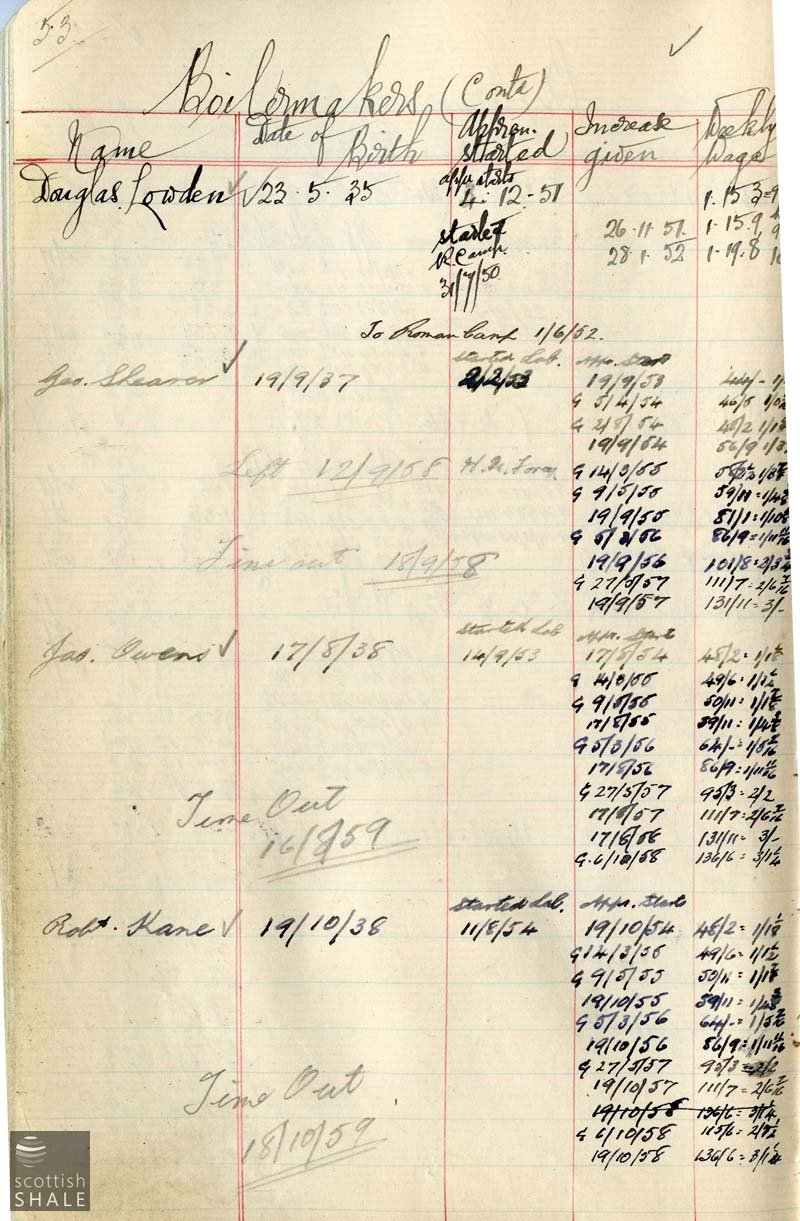 53
Boilermakers (Contd)
Name Date of Birth Appren. started Increase given Weekly Wage
Douglas Lowden 23.5.35 app starts 4.12.51 1.15.3
started R. Camp. 31/7/50
26.11.51 1.15.9
28.1.52 1.19.8
To Roman Camp 1/6/52.
started Lab. App. Start
Geo. Shearer 19/9/37 2/2/53 19/9/53 44/-
G 5/4/54 46/5
G 2/8/54 48/2
19/9/54 56/9
Left 12/9/58 G 14/3/55
G 9/5/55 59/11 = 1/4
19/9/55 81/1 = 1/10
G 5/3/56 86/9 = 1/11
Time out 18/9/58 19/9/56 101/8 = 2/3
G 27/5/57 111/7 = 2/6
19/9/57 131/11 = 3/-
started Lab App. Start
Jas. Owens 17/8/38 14/9/53 17/8/54 48/2 = 1/1
G 14/3/55 49/6 = 1/1½
G 9/5/55 50/11 = 1/1
17/8/55 59/11 = 1/4
G 5/3/56 64/- = 1/5
17/8/56 86/9 = 1/11
G 27/5/57 95/3 = 2/2
Time Out 17/8/57 111/7 = 2/6
16/8/59 17/8/58 131/11 = 3/-
G. 6/10/58 136/6 = 3/1¼
started Lab. App. Start
Robt. Kane 19/10/38 11/8/54 19/10/54 48/2 = 1/1
G 14/3/55 49/6 = 1/1½
G 9/5/55 50/11 = 1/1
19/10/55 59/11 = 1/4
G 5/3/56 64/- = 1/5
19/10/56 86/9 = 1/11
G 27/5/57 95/3 = 2/2
Time Out 19/10/57 111/7 = 2/6
19/10/58 136/6 = 3/1¼
18/10/59 G 6/10/58 115/6 = 2/7½
19/10/58 136/6 = 3/1¼
scottish
SHALE